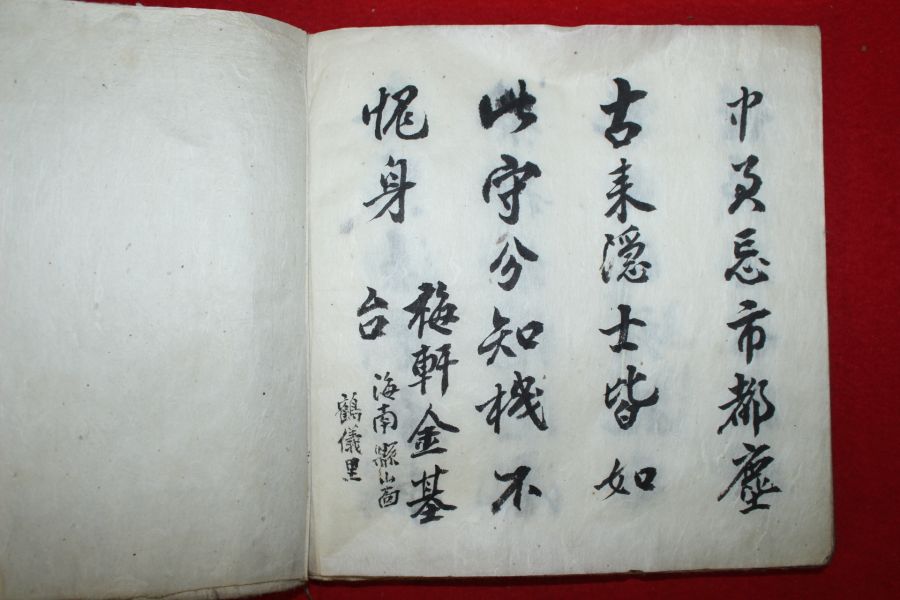 忘市都塵
古来隠士皆如
此守分知機不
愧身
梅軒金基
台
海南縣山面
鶴儀里